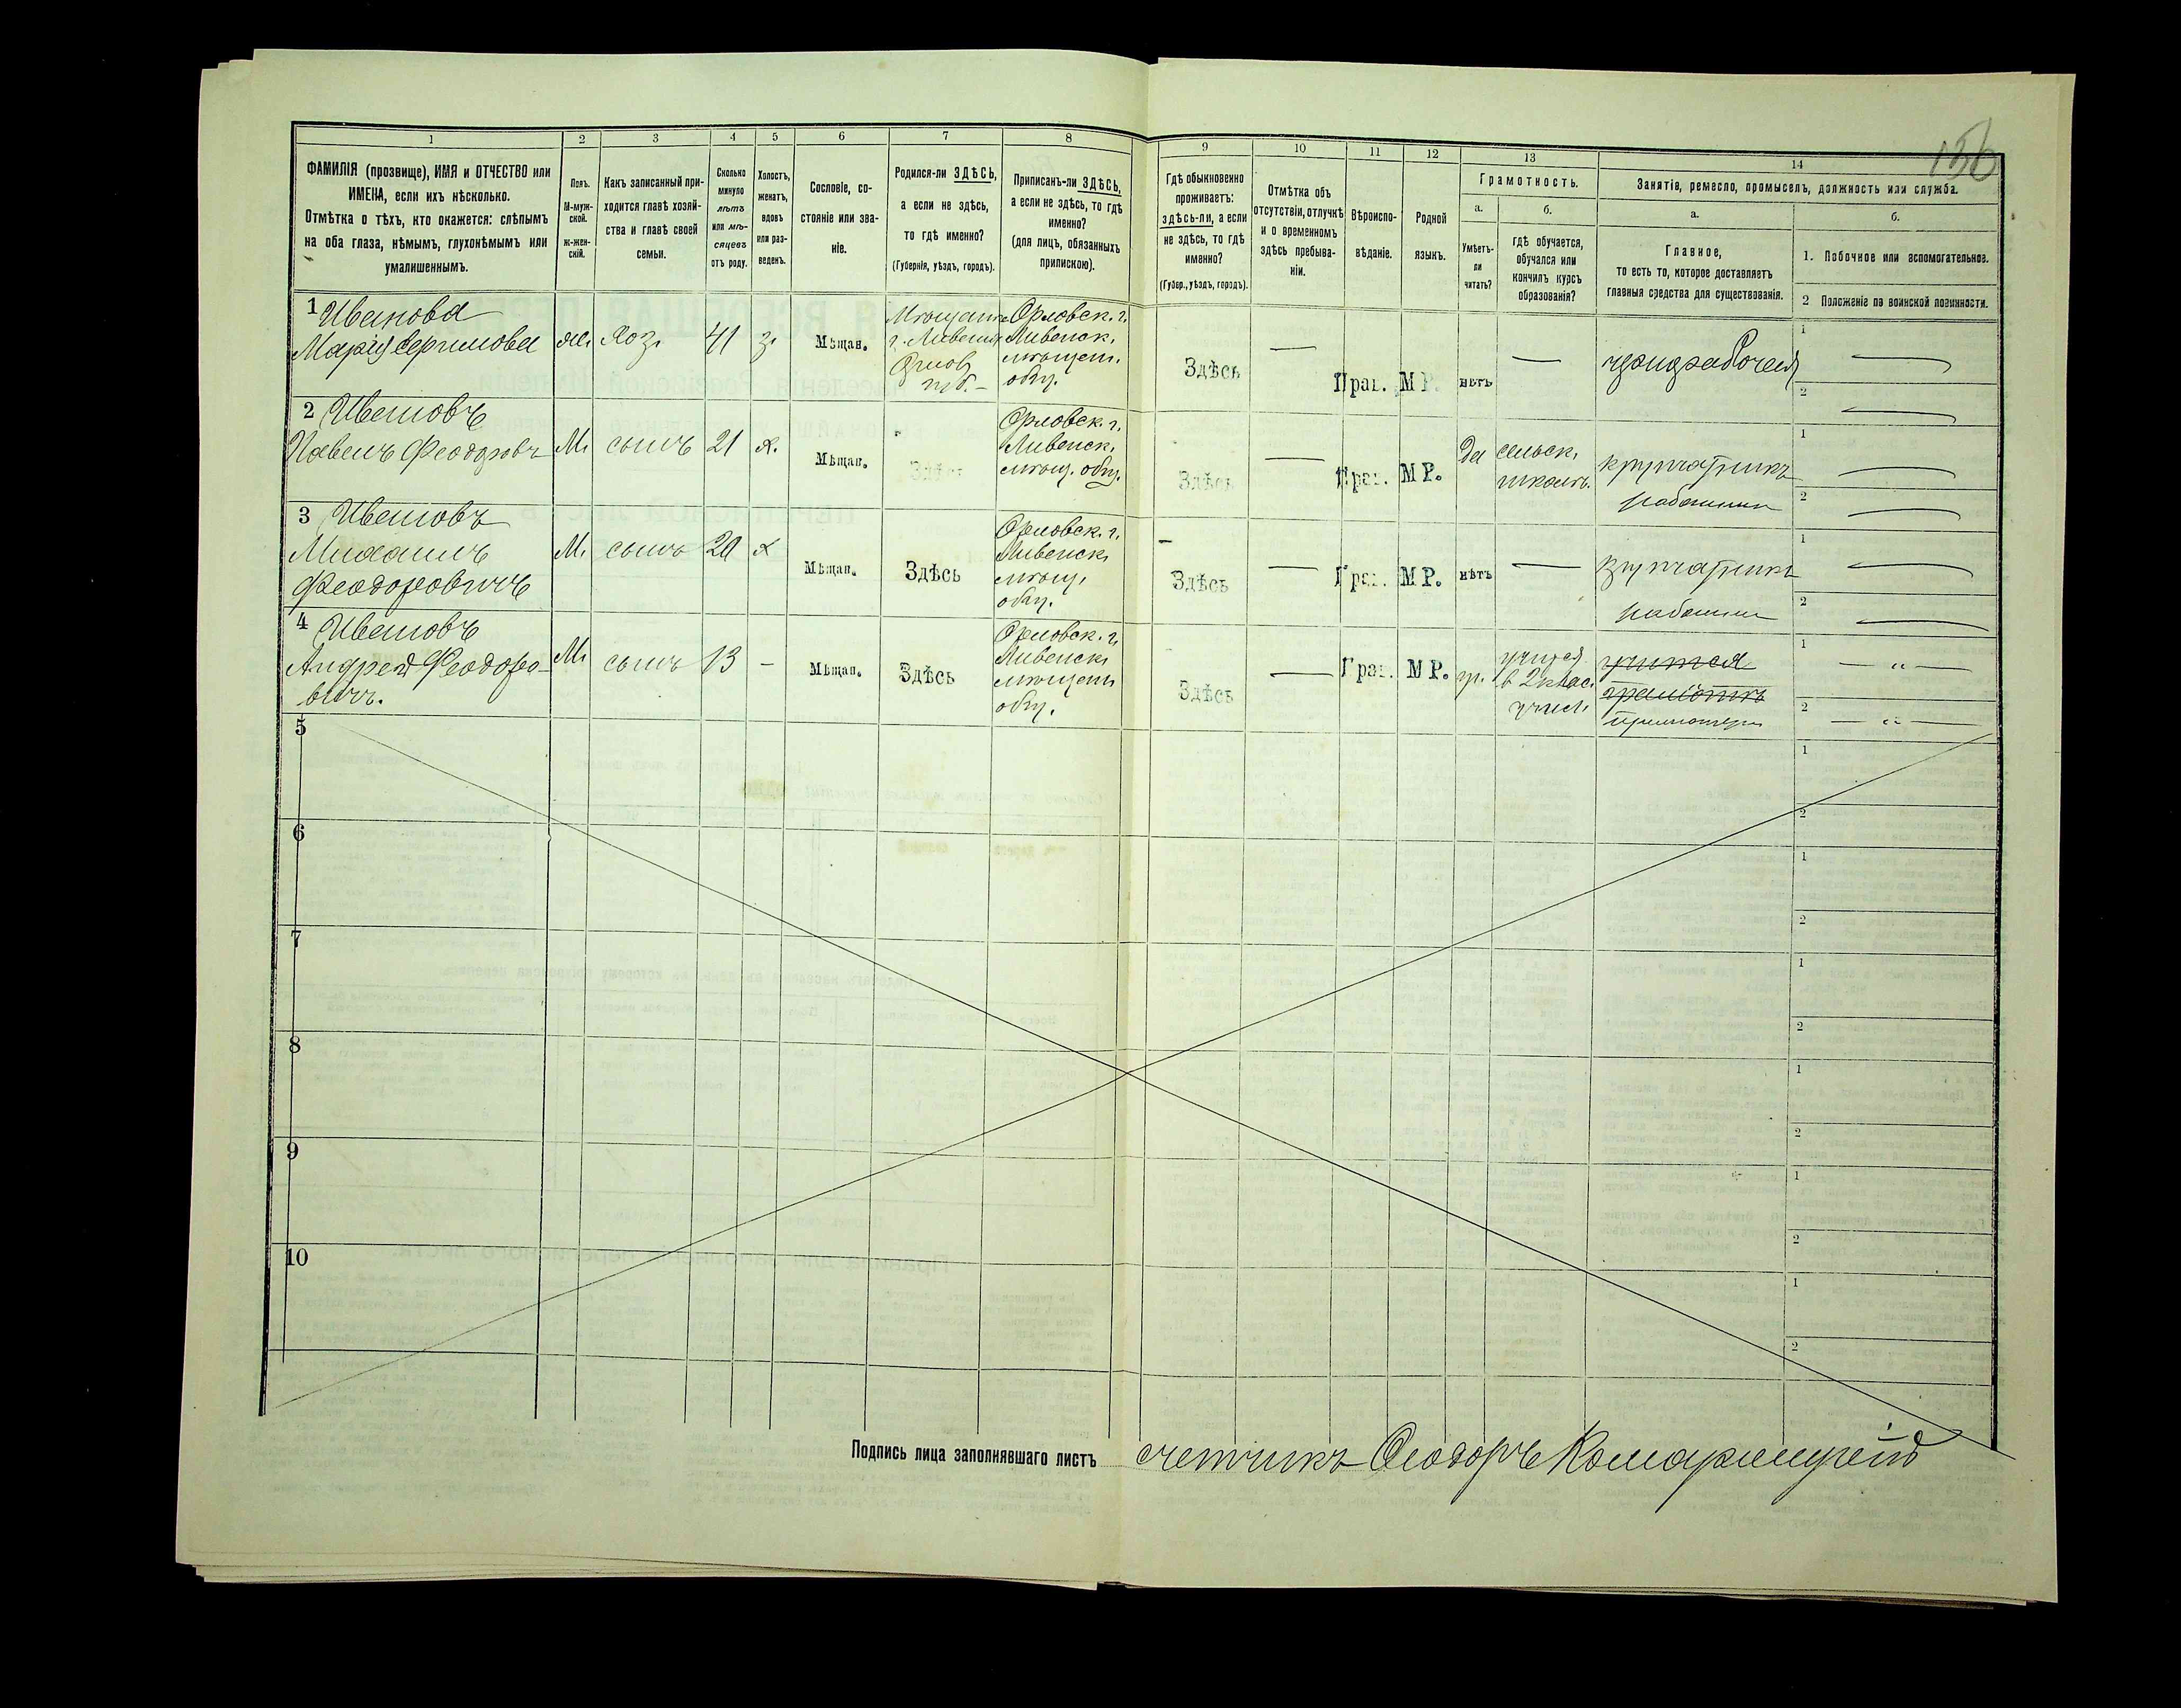 156
1 2 3 4 5 6 7 8 9 10 11 12 13 14
ФАМИЛІЯ (прозвище), ИМЯ и ОТЧЕСТВО или
ИМЕНА, если ихъ нѣсколько.
Отмѣтка о тѣхъ, кто окажется: слѣпымъ
на оба глаза, нѣмымъ, глухонѣмымъ или
умалишеннымъ.
Полъ.
М-муж-
ской.
ж-жен-
скій.
Какъ записанный при-
ходится главѣ хозяй-
ства и главѣ своей
семьи.
Сколько
минуло
лѣтъ
или мѣ-
сяцевъ
отъ роду.
Холостъ,
женатъ,
вдовъ
или раз-
веденъ.
Сословіе, со-
стояніе или зва-
ніе.
Родился-ли ЗДѢСЬ,
а если не здѣсь,
то гдѣ именно?
(Губернія, уѣздъ, городъ).
Приписанъ-ли ЗДѢСЬ,
а если не здѣсь, то гдѣ
именно?
(для лицъ, обязанныхъ
припискою).
Гдѣ обыкновенно
проживаетъ:
здѣсь-ли, а если
не здѣсь, то гдѣ
именно?
(Губер., уѣздъ, городъ).
Отмѣтка объ
отсутствіи, отлучкѣ
и о временномъ
здѣсь пребыва-
ніи.
Вѣроиспо-
вѣданіе.
Родной
языкъ.
Грамотность.
а.
Умѣетъ-
ли
читать?
б.
гдѣ обучается,
обучался или
кончилъ курсъ
образованія?
Занятіе, ремесло, промыселъ, должность или служба.
а.
Главное,
то есть то, которое доставляетъ
главныя средства для существованія.
б.
1. Побочное или вспомогательное.
2 Положеніе по воинской повинности.
1 Иванова
Марія
же. хоз. 41 з. Мѣщан.
г. Ливенъ
Орловск. г.
Ливенск.
мѣщан.
общ.
Здѣсь — Прав. М Р. нѣтъ — чернорабочая
1 —
2 —
2 Ивановъ
Павелъ Феодоровъ
М. сынъ 21 х. Мѣщан. Здѣсь
Орловск. г.
Ливенск.
мѣщ. общ.
Здѣсь — Прав. М Р. да сельск.
школѣ.
1 —
2 —
3 Ивановъ
Михаилъ
Феодоровичъ
М. сынъ 20 х Мѣщан. Здѣсь
Орловск. г.
Ливенск
мѣщ.
общ.
Здѣсь — Прав. М Р. нѣтъ —
1 —
2 —
4 Ивановъ
Андрей Феодоро-
вичъ.
М. сынъ 13 — Мѣщан. Здѣсь
Орловск. г.
Ливенск
мѣщан
общ.
Здѣсь — Прав. М Р. гр. учится
в 2 клас.
учил.
учится
1 — „ —
2 — „ —
5
1
2
6
1
2
7
1
2
8
1
2
9
1
2
10
1
2
Подпись лица заполнявшаго листъ счетчикъ Феодоръ Комарицкій